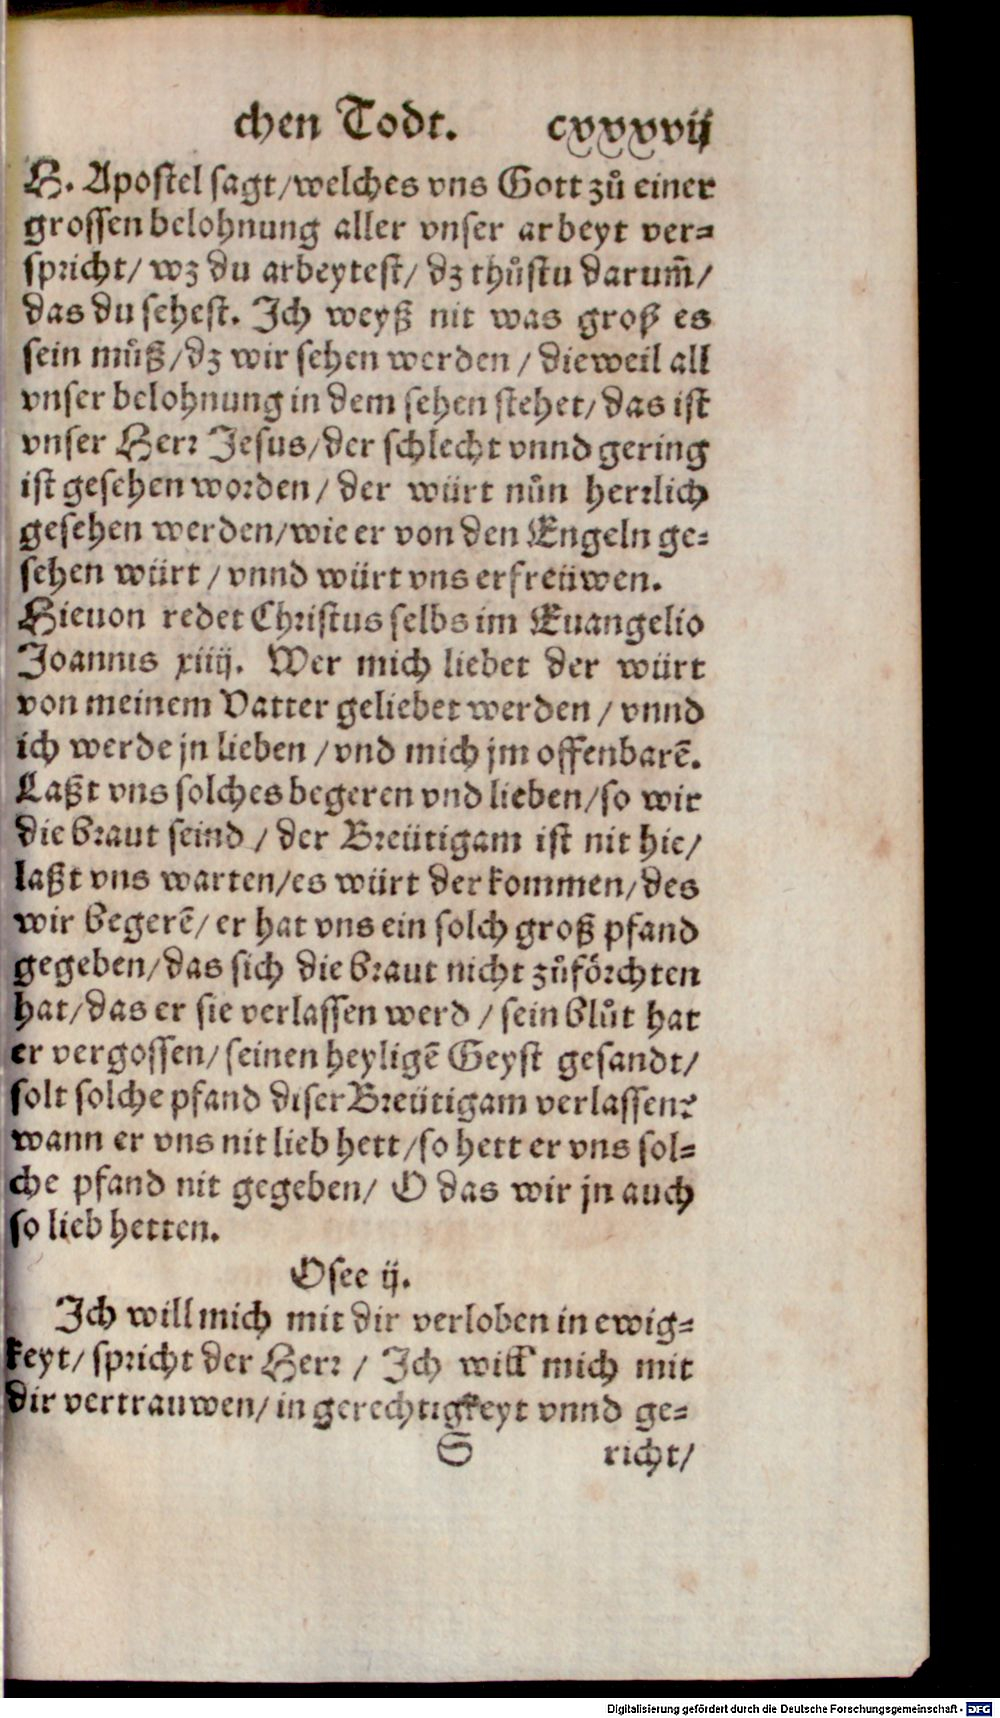 chen Todt. cxxxvij
H. Apostel sagt/welches vns Gott zů einer
grossen belohnung aller vnser arbeyt ver⸗
spricht/ wz du arbeytest/ dz thůstu darum̃/
das du sehest. Ich weyß nit was groß es
sein můß/dz wir sehen werden / dieweil all
vnser belohnung in dem sehen stehet/ das ist
vnser Herr Jesus/der schlecht vnnd gering
ist gesehen worden / der würt nůn herrlich
gesehen werden/wie er von den Engeln ge⸗
sehen würt / vnnd würt vns erfreüwen.
Hieuon redet Christus selbs im Euangelio
Joannis xiiij. Wer mich liebet der würt
von meinem Vatter geliebet werden / vnnd
ich werde jn lieben / vnd mich jm offenbarē.
Laßt vns solches begeren vnd lieben/so wir
die braut seind / der Breütigam ist nit hie/
laßt vns warten/es würt der kommen/des
wir begerē/ er hat vns ein solch groß pfand
gegeben/das sich die braut nicht zůförchten
hat/das er sie verlassen werd / sein blůt hat
er vergossen/ seinen heyligē Geyst gesandt/
solt solche pfand diser Breütigam verlassen?
wann er vns nit lieb hett/so hett er vns sol⸗
che pfand nit gegeben/ O das wir jn auch
so lieb hetten.
Osee ij.
Ich will mich mit dir verloben in ewig⸗
keyt/ spricht der Herr / Ich will mich mit
dir vertrauwen/ in gerechtigkeyt vnnd ge⸗
S richt/
Digitalisierung gefördert durch die Deutsche Forschungsgemeinschaft - DFG